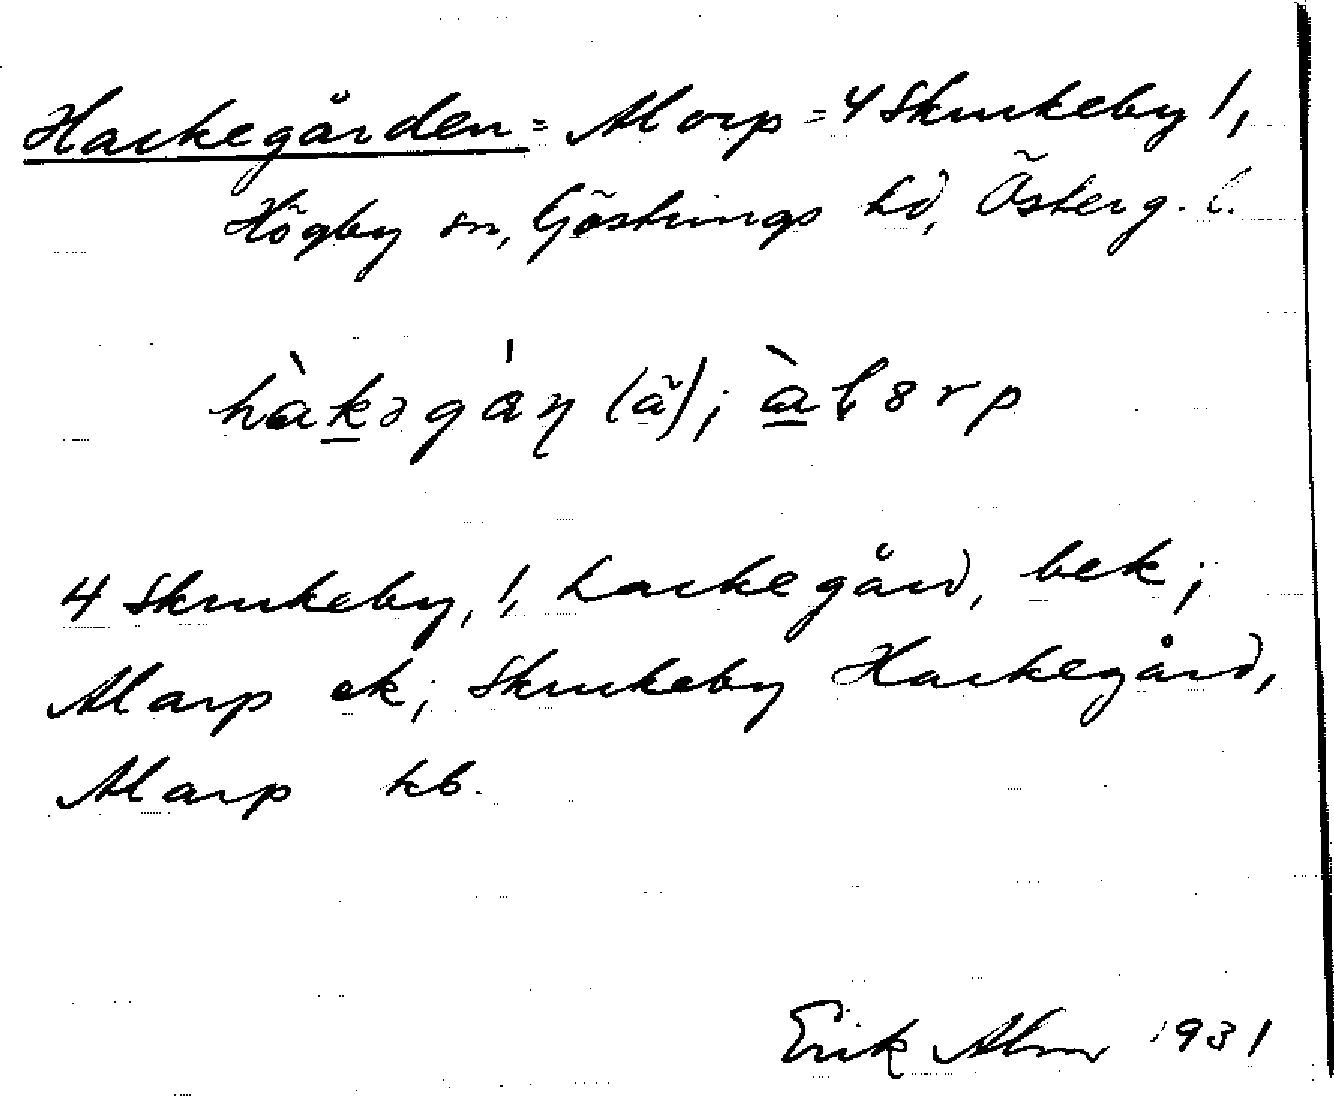 Hackegården = Alorp = 4 Skrukeby 1,
Högby sn, Göstrings hd, Österg. l.
hàkəgán (ã); àlorp
4 Skrukeby, 1, hackegård, bek;
Alarp ek; Skrukeby Hackegård,
Alarp kb.
Erik Alm 1931